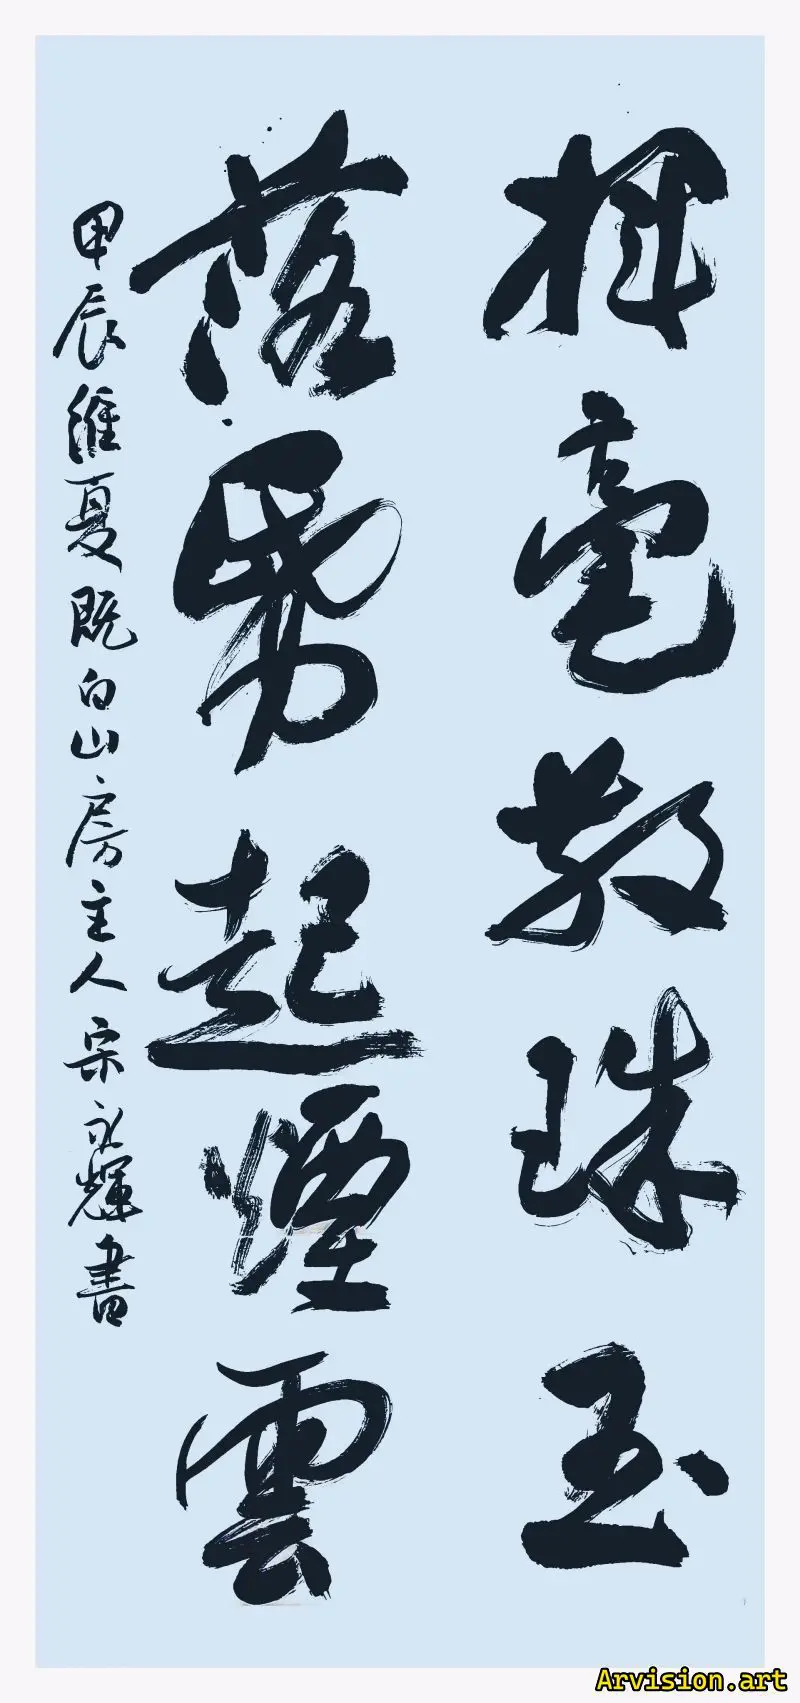 揮毫散珠玉
落帋起煙雲
甲辰維夏既白山房主人宋永輝書
Arvision.art